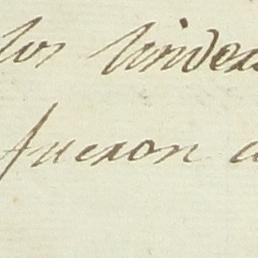 los linde
fueron